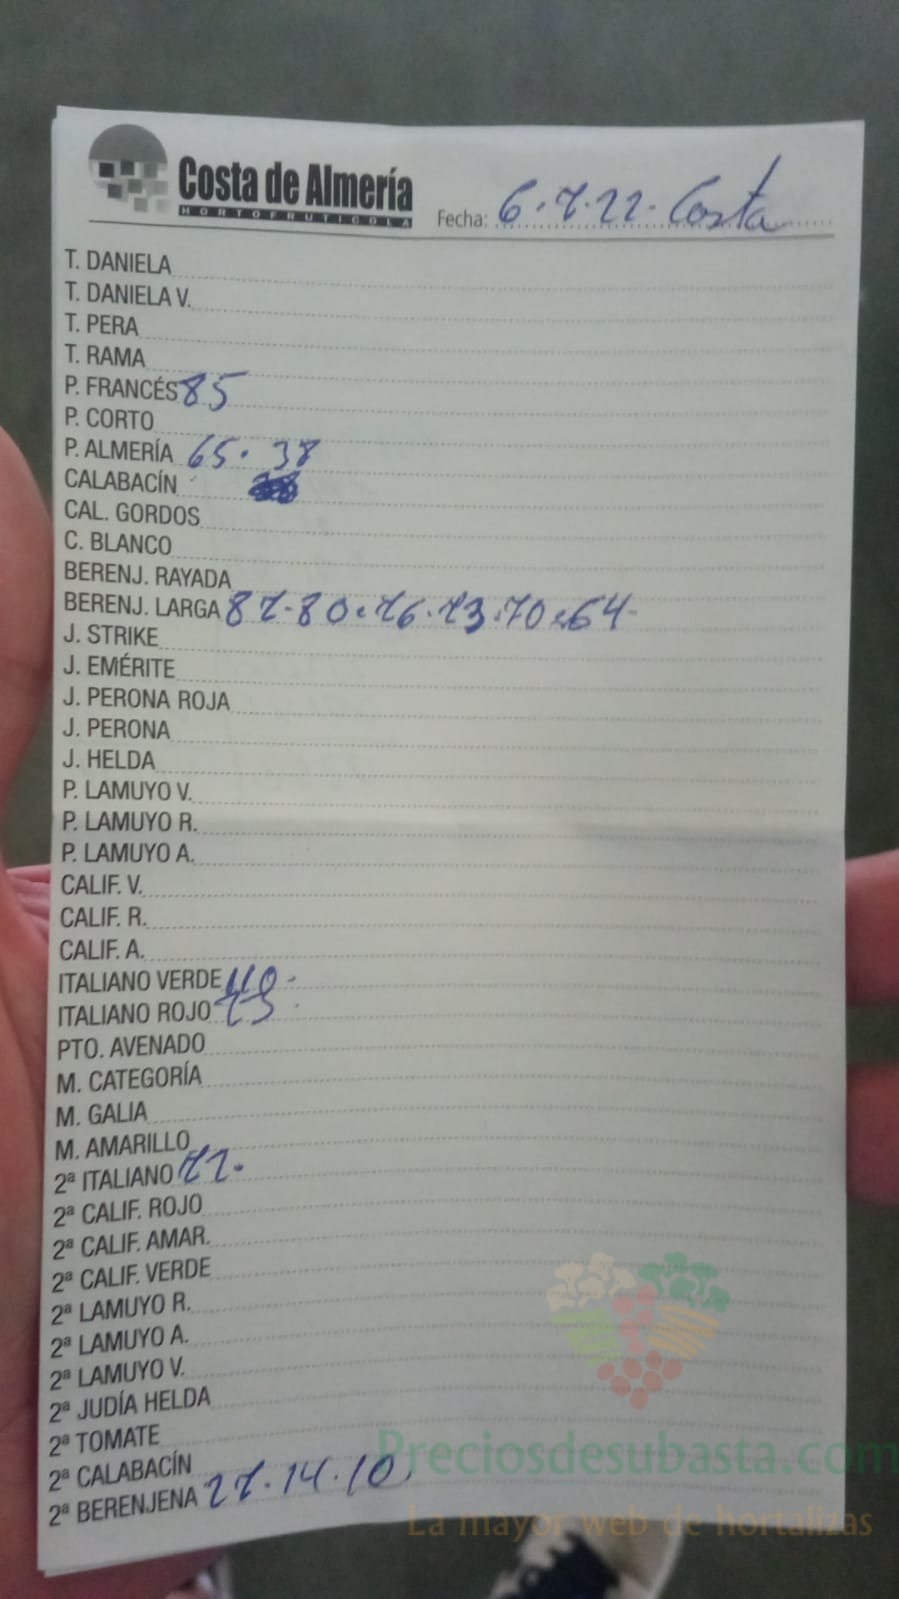 Costa de Almería
HORTOFRUTICOLA
Fecha: 6.7.22. Costa
T. DANIELA
T. DANIELA V.
T. PERA
T. RAMA
P. FRANCÉS 85
P. CORTO
P. ALMERÍA 65. 38
CALABACÍN
CAL. GORDOS
C. BLANCO
BERENJ. RAYADA
BERENJ. LARGA 87.80.76.73.70.64
J. STRIKE
J. EMÉRITE
J. PERONA ROJA
J. PERONA
J. HELDA
P. LAMUYO V.
P. LAMUYO R.
P. LAMUYO A.
CALIF. V.
CALIF. R.
CALIF. A.
ITALIANO VERDE 110.
ITALIANO ROJO 75
PTO. AVENADO
M. CATEGORÍA
M. GALIA
M. AMARILLO
2ª ITALIANO 72.
2ª CALIF. ROJO
2ª CALIF. AMAR.
2ª CALIF. VERDE
2ª LAMUYO R.
2ª LAMUYO A.
2ª LAMUYO V.
2ª JUDÍA HELDA
2ª TOMATE
2ª CALABACÍN
2ª BERENJENA 27.14.10
Preciosdesubasta.com
La mayor web de hortalizas